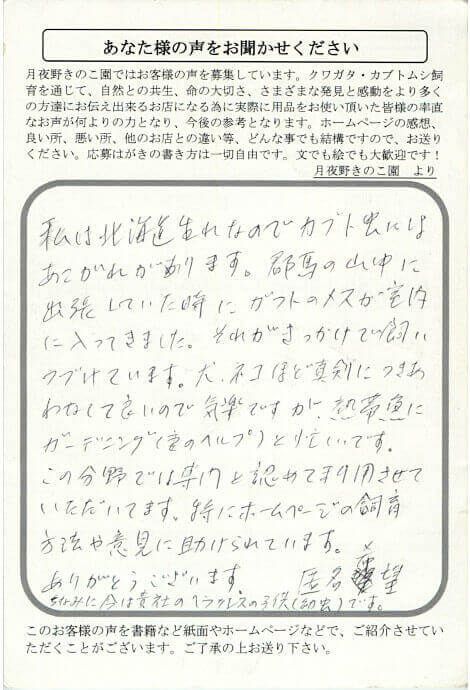 あなた様の声をお聞かせください
月夜野きのこ園ではお客様の声を募集しています。クワガタ・カブトムシ飼
育を通じて、自然との共生、命の大切さ、さまざまな発見と感動をより多く
の方達にお伝え出来るお店になる為に実際に用品をお使い頂いた皆様の率直
なお声が何よりの力となり、今後の参考となります。ホームページの感想、
良い所、悪い所、他のお店との違い等、どんな事でも結構ですので、お送り
ください。応募はがきの書き方は一切自由です。文でも絵でも大歓迎です！
月夜野きのこ園　より
私は北海道生れなのでカブト虫には
あこがれが有ります。郡馬の山中に
出張していた時にカブトのメスが室内
に入ってきました。それがきっかけで飼い
つづけています。犬、ネコほど真剣につきあ
わなくて良いので気楽ですが、熱帯魚に
ガーデニング(妻のヘルプ)と忙しいです。
この分野では専門と認めて利用させて
いただいてます。特にホームページの飼育
方法や意見に助けられています。
ありがとうございます　匿名希望
ちなみに今は貴社のヘラクレスの子供(幼虫)です。
このお客様の声を書籍など紙面やホームページなどで、ご紹介させていた
だくことがございます。ご了承の上お送り下さい。